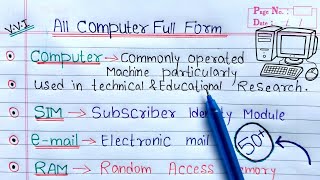 V.V.I
All Computer Full Form
Page No.
Date
Computer → Commonly operated
Machine particularly
used in technical & Educational Research.
SIM → Subscriber Identity Module
e-mail → Electronic mail
50+
RAM → Random Access Memory